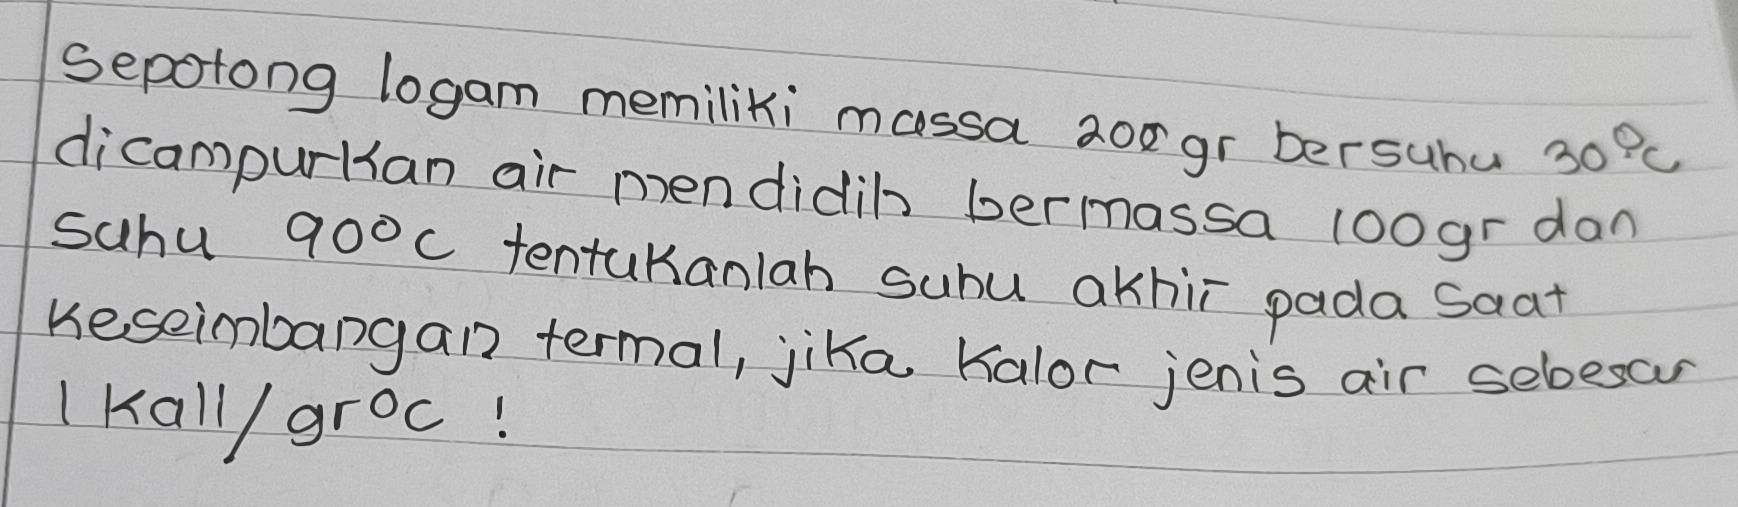 Sepotong logam memiliki massa 200 gr bersuhu 30°c
dicampurkan air mendidih bermassa 100gr dan
suhu 90°c tentukanlah suhu akhir pada saat
keseimbangan termal, jika kalor jenis air sebesar
1 kall/gr°c !